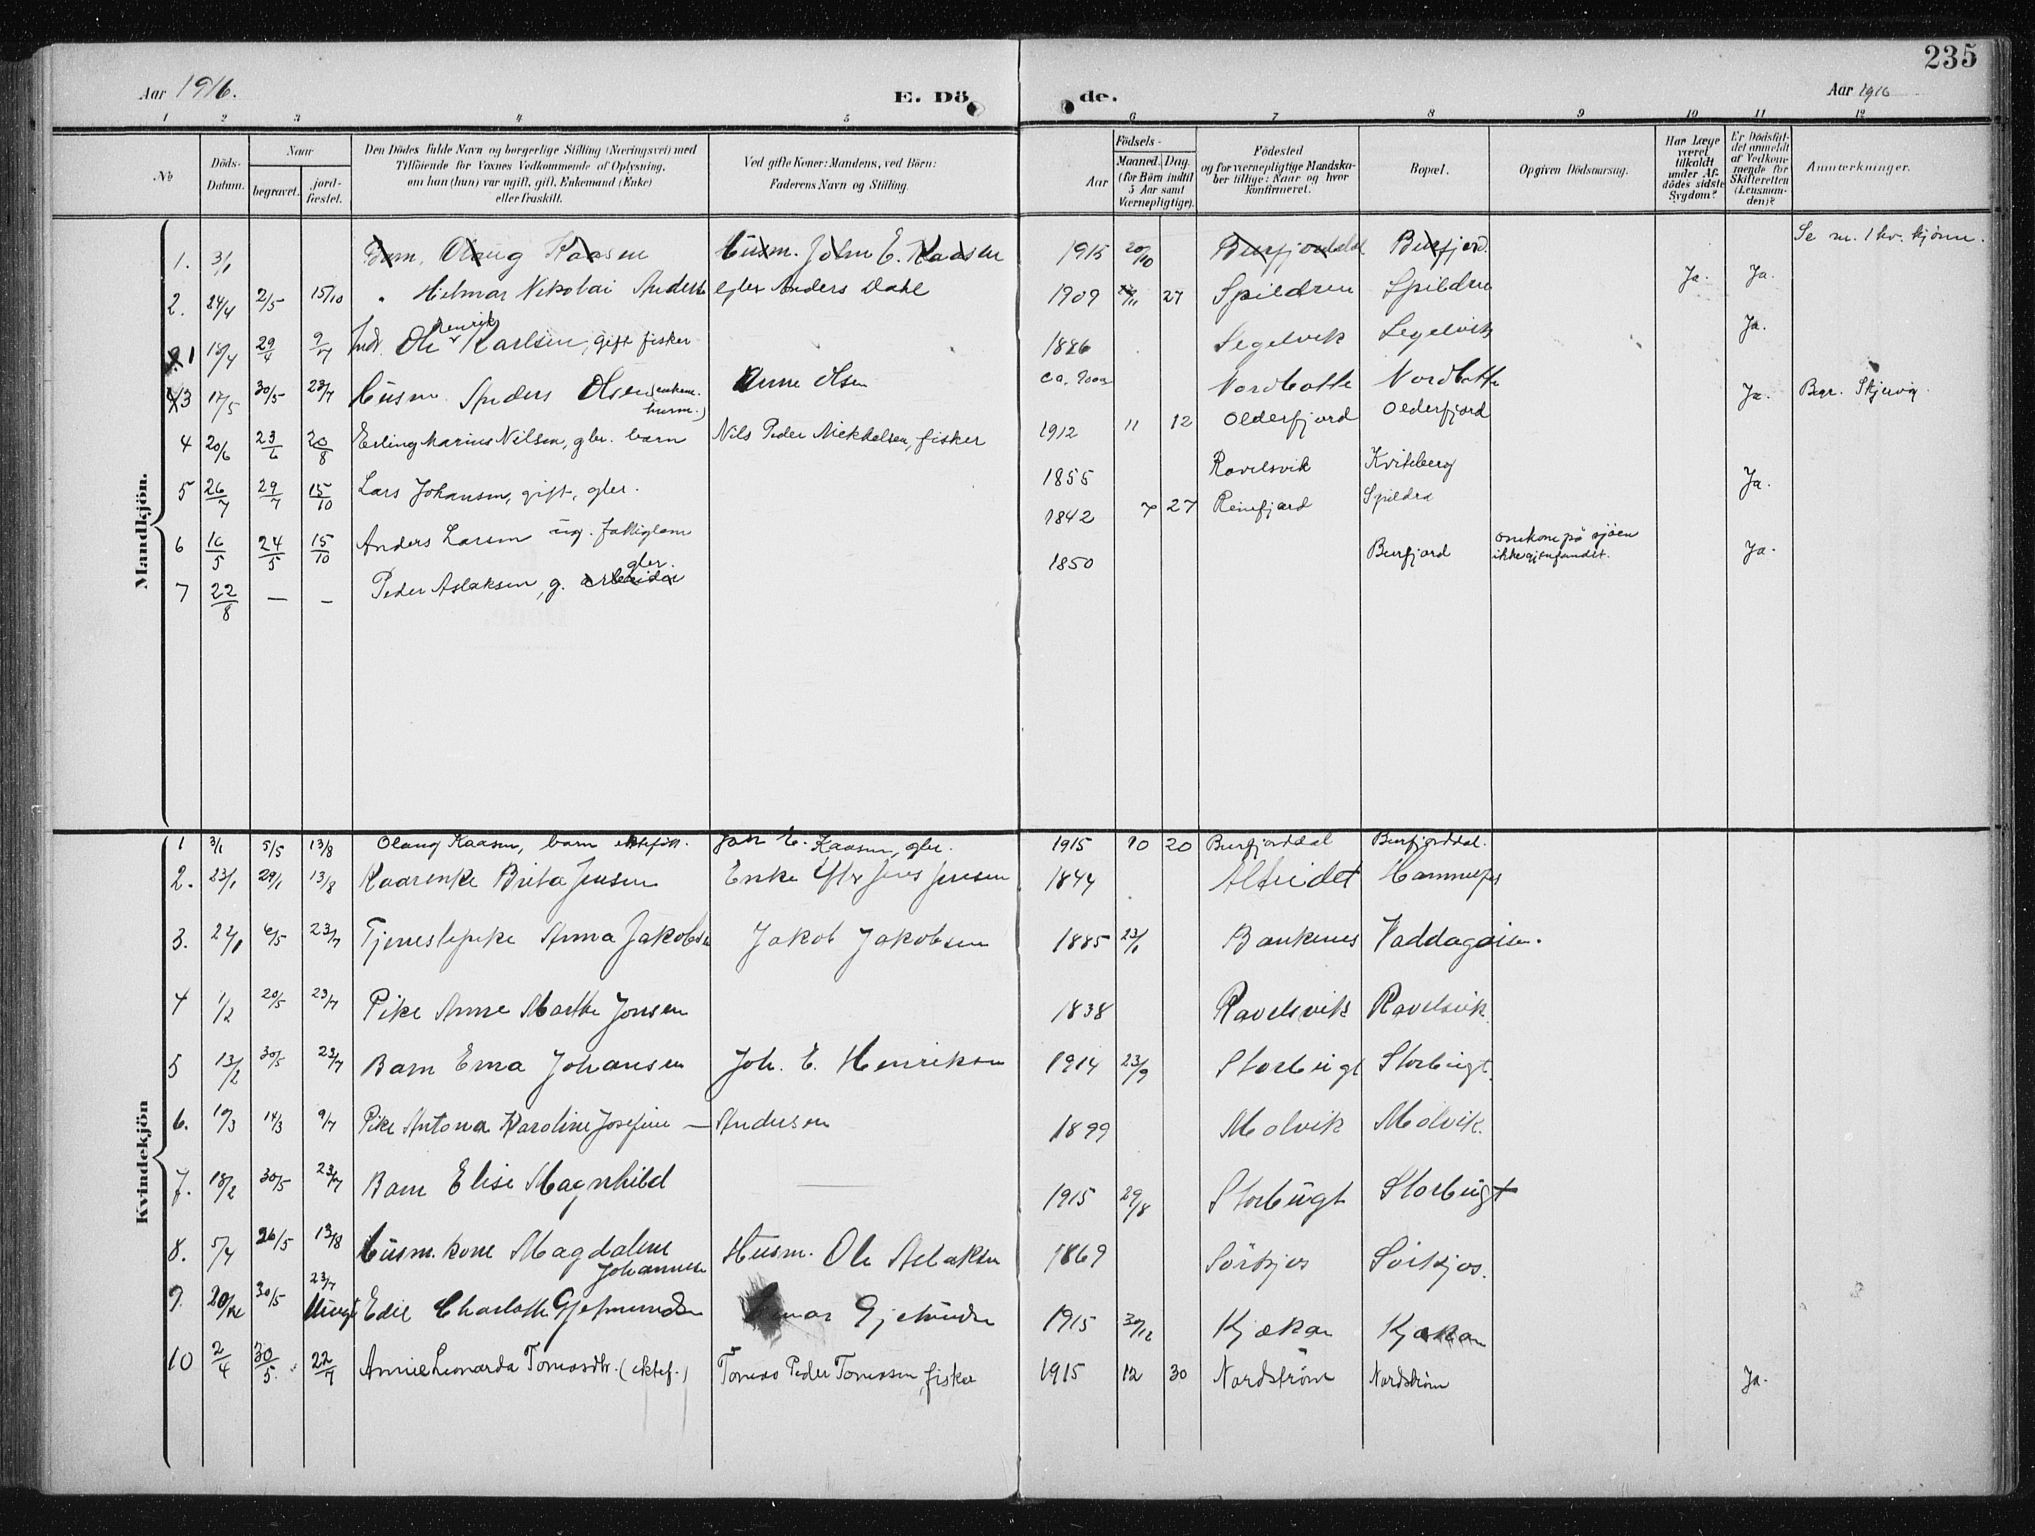 235
Aar 1916.
E. Dö
de.
Aar 1916
1 2 3 4 5 6 7 8 9 10 11 12
No
Döds-Datum.
Naar
begravet.
jord-fæstet.
Den Dödes fulde Navn og borgerlige Stilling (Næringsvei) med
Tilföiende for Voxnes Vedkommende af Oplysning,
om han (hun) var ugift, gift, Enkemand (Enke)
eller fraskilt.
Ved gifte Koner: Mandens, ved Börn:
Faderens Navn og Stilling.
Aar
Födsels-
Maaned. Dag.
(for Börn indtil
5 Aar samt
Værnepligtige).
Födested
og for værnepligtige Mandska-
ber tillige: Naar og hvor
konfirmeret.
Bopæl.
Opgiven Dödsaarsag.
Har Læge
været
tilkaldt
under Af-
dödes sidste
Sygdom?
Er Dödsfal-
det anmeldt
af Vedkom-
mende for
Skifteretten
(Lensman-
den)?
Anmerkninger.
Mandkjön.
1. 3/1 Barn, Olaug Kaasen Husm. John E. Kaasen 1915 20/10 Burfjorddal Burfjord. Se nr. 1 kv. kjønn.
2. 24/4 2/5 15/10 " Hilmar Nikolai Anders Anders Dahl 1909 11 27 Spildren Spildren Ja. Ja.
1 18/4 29/4 9/7 Ind. Ole Henrik Karlsen, gift fisker 1886 Segelvik Segelvik Ja.
3 17/5 30/5 23/7 Husm. Anders Olsen Anne Olsen ca. Nordbotte Nordbotte Ja. Begr. Skjervøy
4 20/6 23/6 20/8 Erling Marius Nilsen, gbr. barn Nils Peder Mikkelsen, fisker 1912 11 12 Olderfjord Olderfjord
5 26/7 29/7 15/10 Lars Johansen, gift, gbr. 1855 Ravelsvik Kviteberg Ja.
6 16/5 24/5 15/10 Anders Larsen ug. fattiglem 1842 7 27 Reinfjord Spildra
7 22/8 — — Peder Aslaksen, g. arbeider gbr. 1850 Burfjord omkom på sjøen
ikke gjenfundet. Ja.
Kvindekjön
1 3/1 5/5 13/8 Olaug Kaasen, barn ektefød. John E. Kaasen, gbr. 1915 10 20 Burfjorddal Burfjorddal.
2. 23/1 29/1 13/8 Kaarenke Brita Jensen Enke efter Jens Jensen 1844 Alteidet Hammerfes
3. 22/1 6/5 23/7 Tjenestepike Anna Jakobsen Jakob Jakobsen 1885 23/1 Baukenes Vaddagaisen.
4 1/2 20/5 23/7 Pike Anne Marthe Jonsen 1838 Ravelsvik Ravelsvik.
5 13/2 30/5 23/7 Barn Erna Johansen Joh. E. Henriksen 1914 23/9 Storbugt Storbugt.
6. 10/3 14/3 9/7 Pike Antona Karoline Josefine — Andersen 1899 Malvik Malvik.
7. 18/2 30/5 23/7 Barn Elise Magnhild — 1915 29/8 Storbugt Storbugt
8. 5/4 26/5 13/8 Husm. kone Magdalene Johannesen Husm. Ole Aslaksen 1869 Sörkjos Sörkjos.
9. 20/12 30/5 23/7 Edil Charlotte Gjetmundsen 1915 30/12 Kjækan Kjækan
10 2/4 30/5. 22/7 Annie Leonarda Tomasdtr. (ektef.) Tomas Peder Tomassen, fisker 1915 12 30 Nordstrøm Nordstrøm Ja.